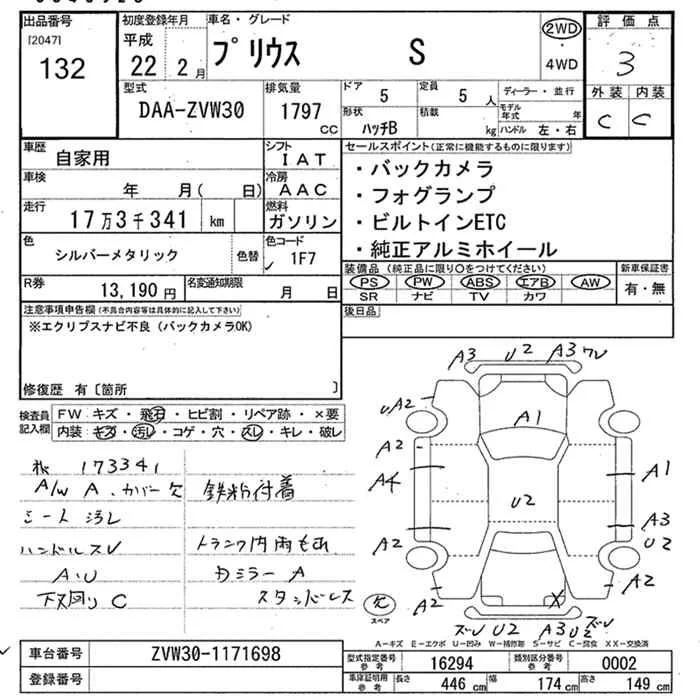 出品番号
[2047]
132
初度登録年月
平成
22年2月
車名・グレード
プリウス S
2WD
・
4WD
評価点
3
外装 内装
C C
型式
DAA-ZVW30
排気量
1797 CC
ドア 5
定員 5 人
ディーラー・並行
形状 ハッチB
積載 kg
モデル年式 年
ハンドル 左・右
車歴
自家用
シフト
IAT
車検
年 月( 日)
冷房
AAC
走行
17万3千341 km
燃料
ガソリン
色
シルバーメタリック
色替
色コード
1F7
R券
13,190円
名変通知期限
月 日
セールスポイント(正常に機能するものに限ります)
・バックカメラ
・フォグランプ
・ビルトインETC
・純正アルミホイール
装備品(純正品に限り○をつけてください)
PS PW ABS エアB AW
SR ナビ TV カワ
新車保証書
有・無
後日品
注意事項申告欄(不具合内容等は具体的に記入して下さい)
※エクリプスナビ不良(バックカメラOK)
修復歴 有〔箇所 〕
検査員
記入欄
FW:キズ・飛石・ヒビ割・リペア跡・×要
内装:キズ・汚レ・コゲ・穴・スレ・キレ・破レ
173341
A/W A.カバー欠 鉄粉付着
シート汚レ
ハンドルスレ トランク内雨もれ
A.U Dミラー A
下回り C
A3 U2 A3 ワレ
UA2 A1 A2
A2 A1
A4 U2
A3
A2 U2
A2 A2
欠
スペア
ズレ U2 A3 U2 ズレ
A-キズ E-エクボ U-凹み W-補修跡 S-サビ C-腐食 XX-交換済
車台番号
ZVW30-1171698
登録番号
型式指定番号
参考
16294
類別区分番号
参考
0002
車庫証明用
参考
長さ 446 cm
幅 174 cm
高さ 149 cm